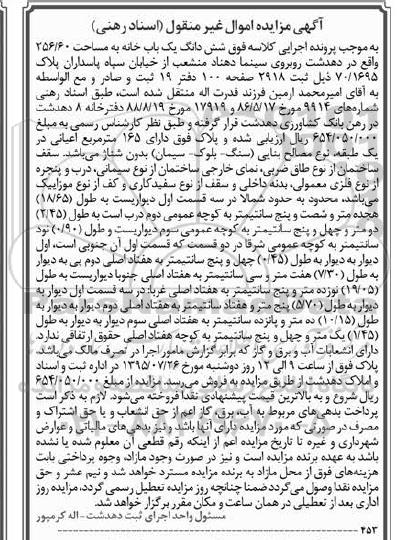 آگهی مزایده اموال غیر منقول (اسناد رهنی)
به موجب پرونده اجرایی کلاسه فوق شش دانگ یک باب خانه به مساحت ۲۵۶/۶۰
واقع در دهدشت روبروی سینما دهناد منشعب از خیابان سپاه پاسداران پلاک
۷۰/۱۶۹۵ ذیل ثبت ۲۹۱۸ صفحه ۱۰۰ دفتر ۱۹ ثبت و صادر و مع الواسطه
به آقای امیرمحمد ارمین فرزند قدرت اله منتقل شده است، طبق اسناد رهنی
شماره‌های ۹۹۱۴ مورخ ۸۶/۵/۱۷ و ۱۷۹۱۹ مورخ ۸۸/۸/۱۹ دفترخانه ۸ دهدشت
در رهن بانک کشاورزی دهدشت قرار گرفته و طبق نظر کارشناس رسمی به مبلغ
۶۵۴/۰۵۰/۰۰۰ ریال ارزیابی شده و پلاک فوق دارای ۱۶۵ مترمربع اعیانی در
یک طبقه، نوع مصالح بنایی (سنگ- بلوک- سیمان) بدون شناژ می‌باشد. سقف
ساختمان از نوع طاق ضربی، نمای خارجی ساختمان از نوع سیمانی، درب و پنجره
از نوع فلزی معمولی، بدنه داخلی و سقف از نوع سفیدکاری و کف از نوع موزاییک
می‌باشد، محدود به حدود شمالا در سه قسمت اول دیواریست به طول (۱۸/۶۵)
هجده متر و شصت و پنج سانتیمتر به کوچه عمومی دوم درب است به طول (۲/۴۵)
دو متر و چهل و پنج سانتیمتر به کوچه عمومی سوم دیواریست و طول (۰/۹۰) نود
سانتیمتر به کوچه عمومی شرقا در دو قسمت که قسمت اول آن جنوبی است، اول
دیوار به دیوار به طول (۰/۴۵) چهل و پنج سانتیمتر به هفتاد اصلی دوم پی به دیوار
به طول (۷/۳۰) هفت متر و سی سانتیمتر به هفتاد اصلی جنوبا دیواریست به طول
(۱۹/۰۵) نوزده متر و پنج سانتیمتر به هفتاد اصلی غربا: در سه قسمت اول دیوار به
دیوار به طول (۵/۷۰) پنج متر و هفتاد سانتیمتر به هفتاد اصلی دوم دیوار به دیوار به
طول (۱۰/۱۵) ده متر و پانزده سانتیمتر به هفتاد اصلی سوم دیوار به دیوار به طول
(۱/۴۵) یک متر و چهل و پنج سانتیمتر به کوچه هفتاد اصلی حقوق ارتفاقی ندارد.
دارای انشعابات آب و برق و گاز که برابر گزارش مامور اجرا در تصرف مالک می‌باشد.
پلاک فوق از ساعت ۹ الی ۱۲ روز دوشنبه مورخ ۱۳۹۵/۰۷/۲۶ در اداره ثبت و اسناد
و املاک دهدشت از طریق مزایده به فروش می‌رسد. مزایده از مبلغ ۶۵۴/۰۵۰/۰۰۰
ریال شروع و به بالاترین قیمت پیشنهادی نقدا فروخته می‌شود. لازم به ذکر است
پرداخت بدهی‌های مربوط به آب، برق، گاز اعم از حق انشعاب و یا حق اشتراک و
مصرف در صورتی که مورد مزایده دارای آنها باشد و نیز بدهی‌های مالیاتی و عوارض
شهرداری و غیره تا تاریخ مزایده اعم از اینکه رقم قطعی آن معلوم شده یا نشده
باشد به عهده برنده مزایده است و نیز در صورت وجود مازاد، وجوه پرداختی بابت
هزینه‌های فوق از محل مازاد به برنده مزایده مسترد خواهد شد و نیم عشر و حق
مزایده نقدا وصول می‌گردد ضمنا چنانچه روز مزایده تعطیل رسمی گردد، مزایده روز
اداری بعد از تعطیلی در همان ساعت و مکان مقرر برگزار خواهد شد.
مسئول واحد اجرای ثبت دهدشت- اله کرمپور
۴۵۳